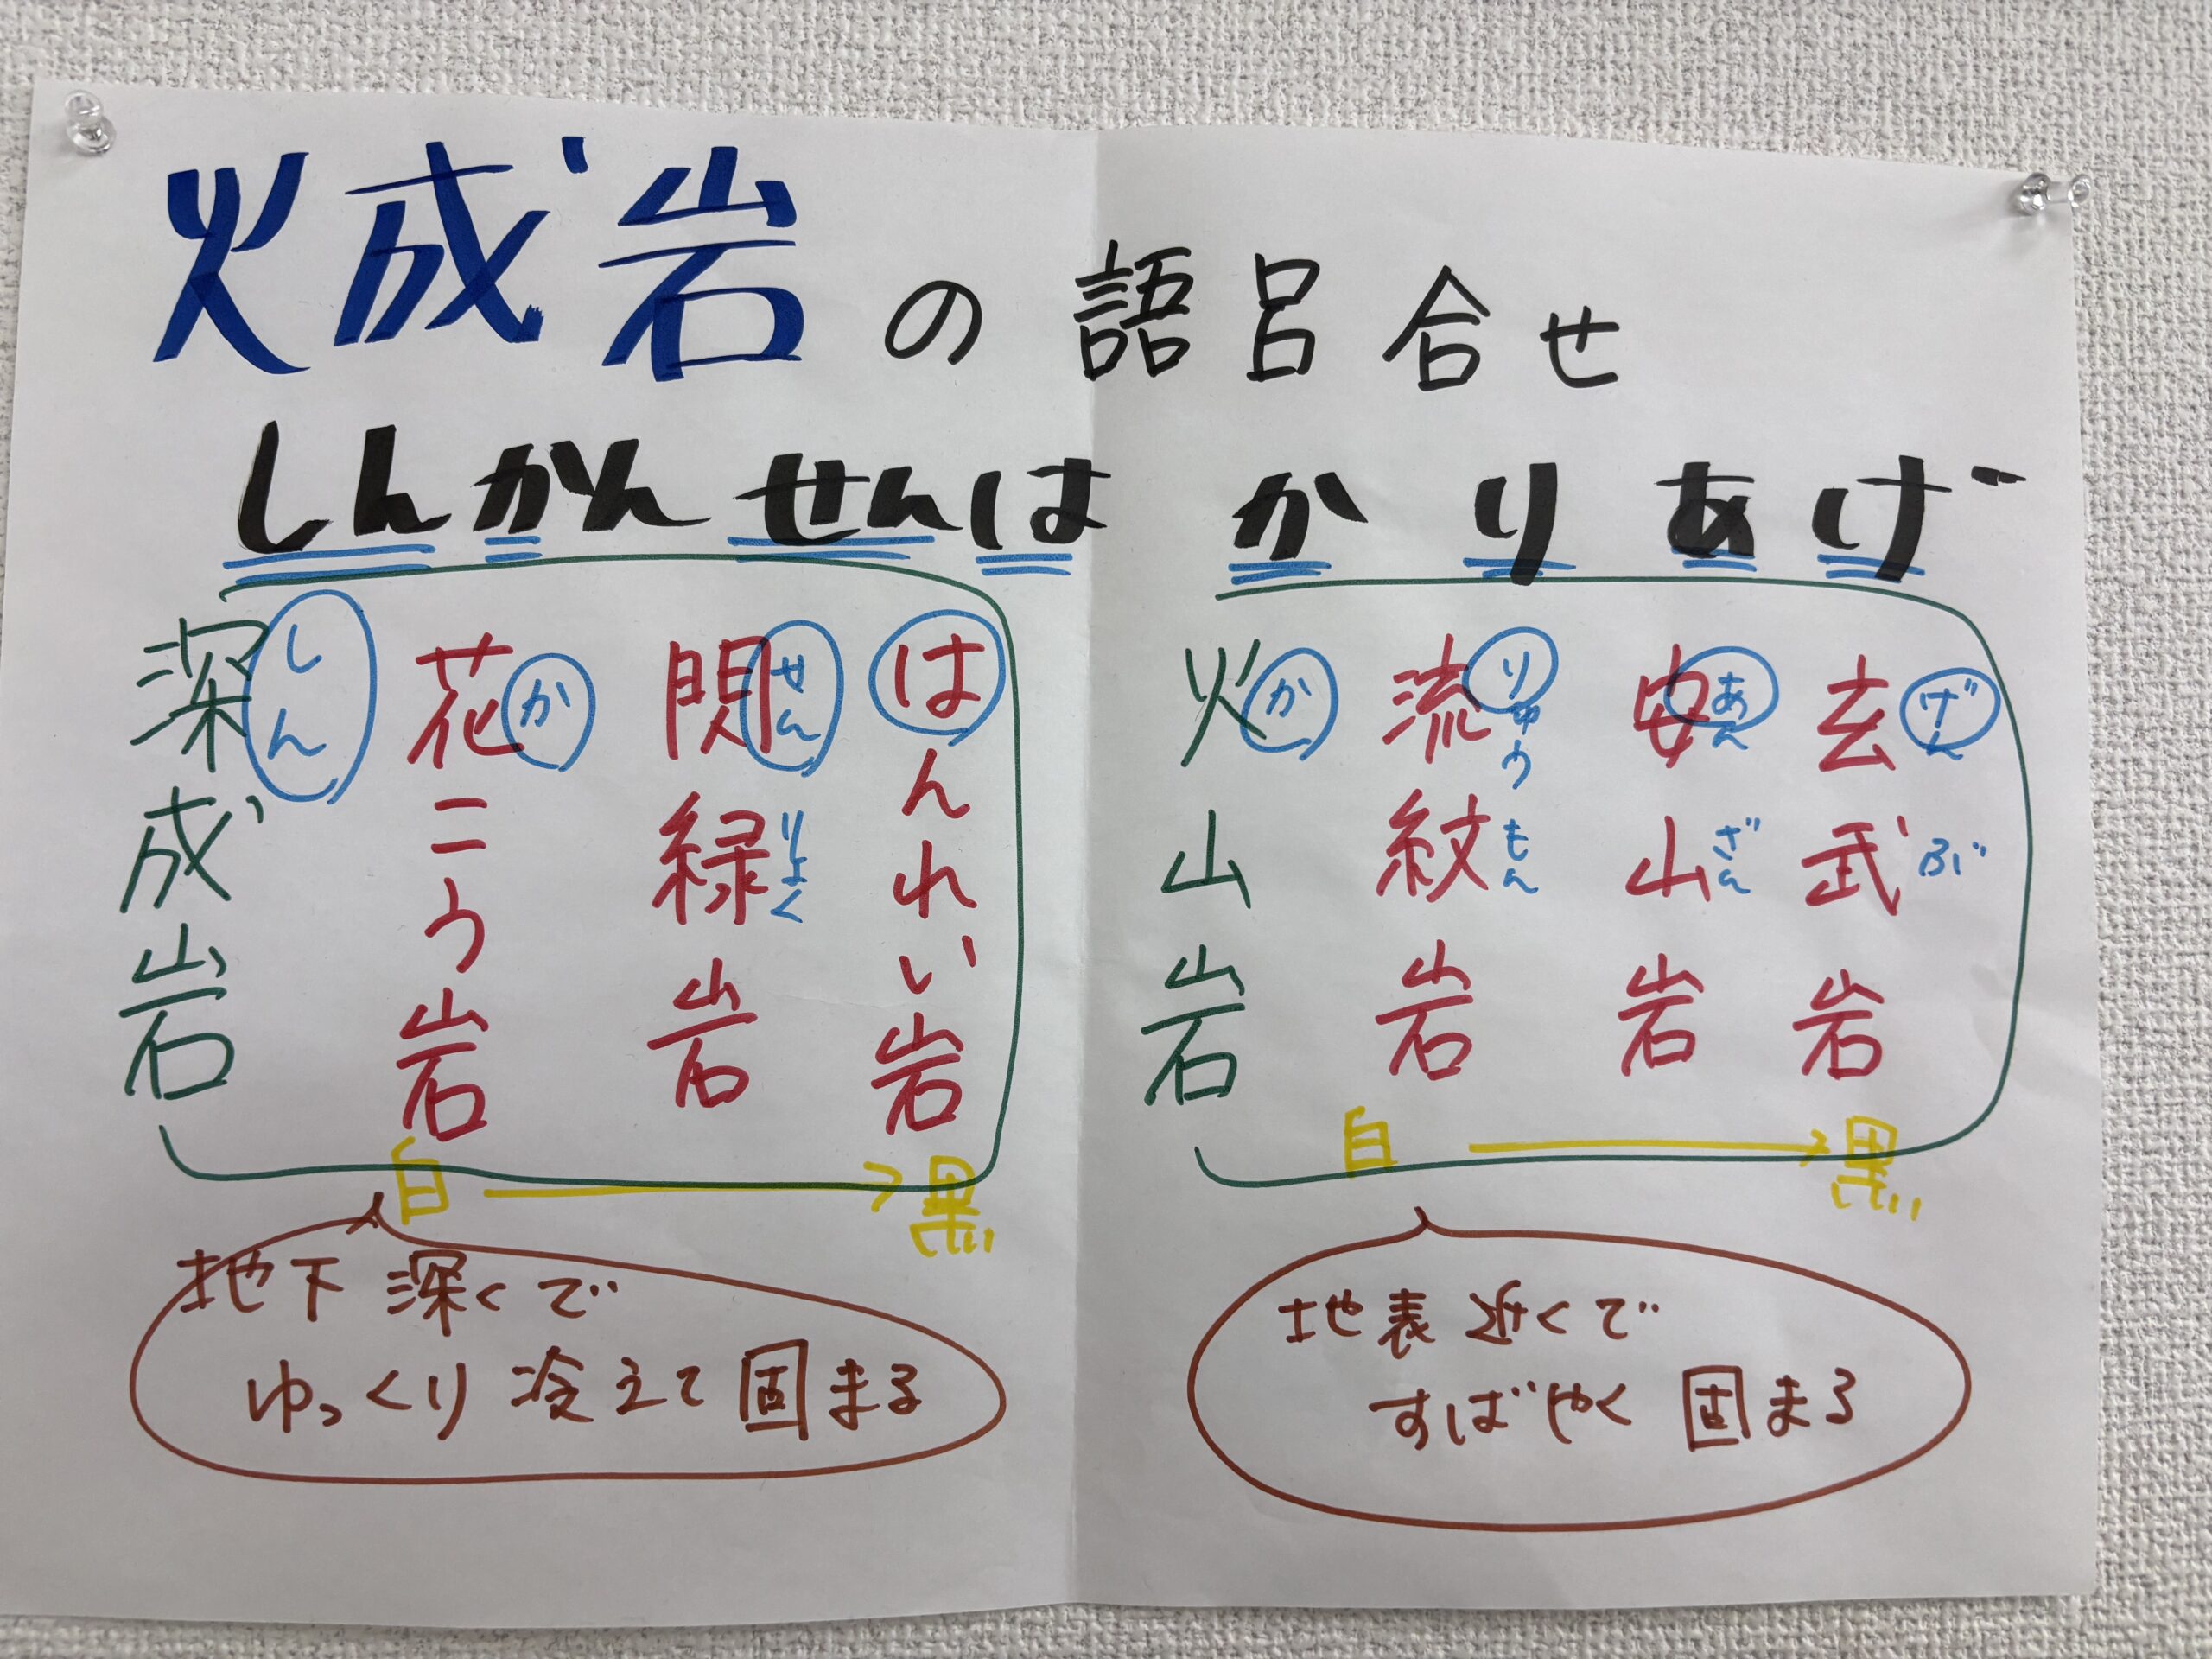 火成岩の語呂合せ
しんかんせんは かりあげ
深成岩 しん
花こう岩 か
閃緑岩 せんりょく
はんれい岩
白→黒
地下深くで
ゆっくり冷えて固まる
火山岩 か
流紋岩 りゅうもん
安山岩 あんざん
玄武岩 げんぶ
白→黒
地表近くで
すばやく固まる